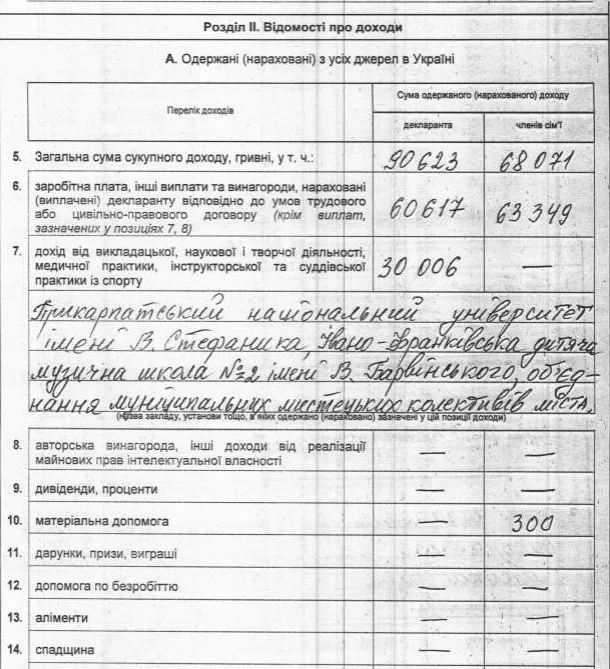 Розділ II. Відомості про доходи
А. Одержані (нараховані) з усіх джерел в Україні
Перелік доходів
Сума одержаного (нарахованого) доходу
декларанта
членів сім'ї
5. Загальна сума сукупного доходу, гривні, у т. ч.: 90 623 68 071
6. заробітна плата, інші виплати та винагороди, нараховані
(виплачені) декларанту відповідно до умов трудового
або цивільно-правового договору (крім виплат,
зазначених у позиціях 7, 8)
60 617 63 349
7. дохід від викладацької, наукової і творчої діяльності,
медичної практики, інструкторської та суддівської
практики із спорту
30 006 —
Прикарпатський національний університет
імені В. Стефаника, Івано-Франківська дитяча
музична школа №2 імені В. Барвінського, об'єд-
нання муніципальних мистецьких колективів міста,
(назва закладу, установи тощо, в яких одержано (нараховано) зазначені у цій позиції доходи)
8. авторська винагорода, інші доходи від реалізації
майнових прав інтелектуальної власності
— —
9. дивіденди, проценти — —
10. матеріальна допомога — 300
11. дарунки, призи, виграші — —
12. допомога по безробіттю — —
13. аліменти — —
14. спадщина — —